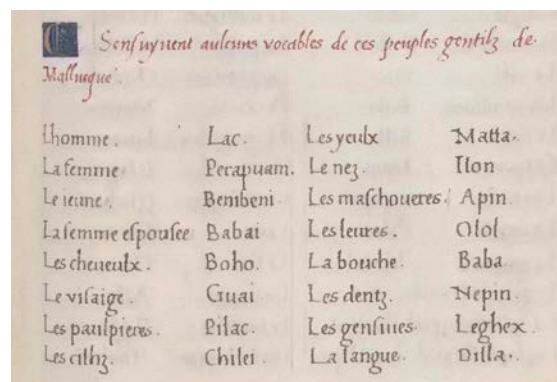 Senſuyuent aulcuns vocables de ces peuples gentilz de
Malluque
Lhomme. Lac. Les yeulx Matta.
La femme Perapuam. Le nez. Iton
Le ieune. Benibeni. Les maſchoueres. Apin.
La femme eſpouſee Babai Les leures. Olol.
Les cheueulx. Boho. La bouche. Baba.
Le viſaige. Guai Les dentz. Nepin.
Les paulpieres. Pilac. Les genſiues. Leghex.
Les cilhz Chilei La langue. Dilla.